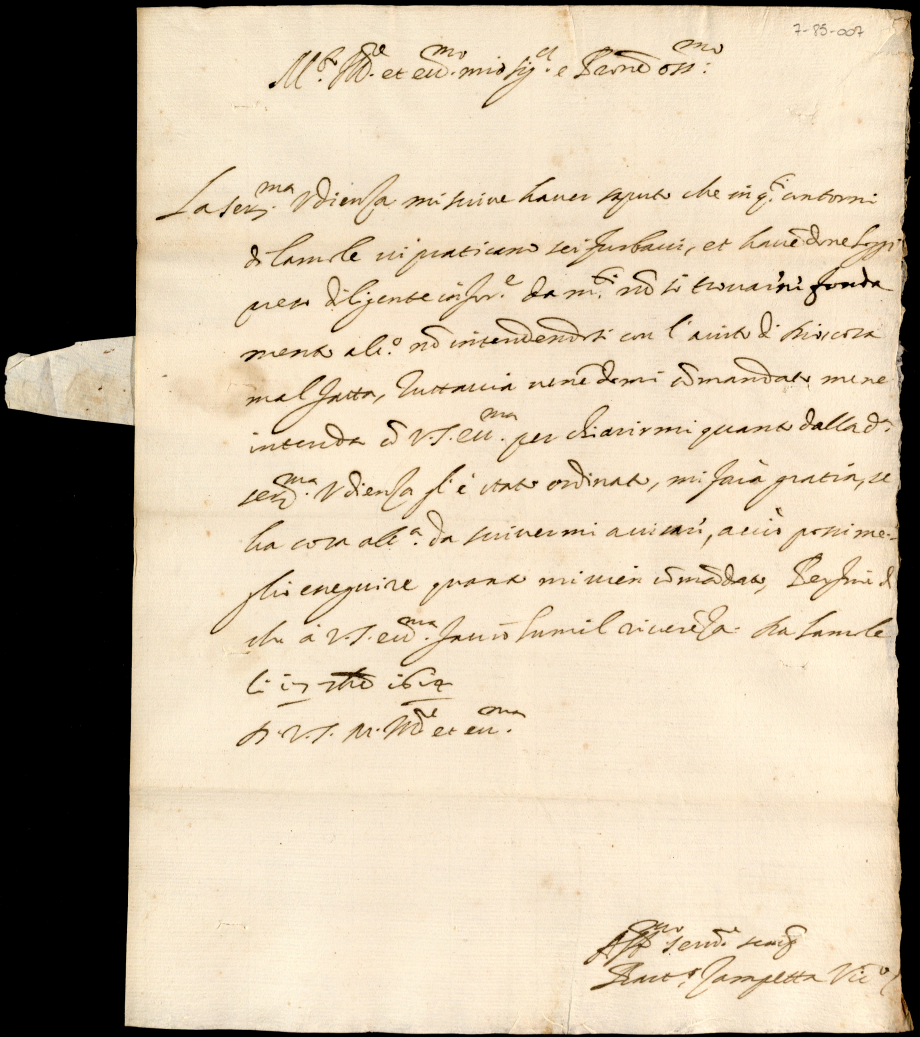 7-85-007
M.to Ill.re et ecc.mo mio sig.r e Prone oss.mo
La ser.ma Udienza mi scrive haver saputo che in q.ti contorni
di lamole vi praticano sei furbacci, et havēdone hoggi
preso diligente infor.e da m.ti nō si trova in ciò fonda
mento alc.o nō intendendosi con l'aiuto di Dio, cosa
mal fatta, Tuttavia venēdomi cōmandato me ne
intenda cō V.S. ecc.ma per chiarirmi quanto dalla d.a
ser.ma Udienza gli è stato ordinato, mi farà gratia, se
ha cosa alc.a da scrivermi avisarmi, acciò possi me-
glio eneguire quanto mi vien cōmādato, Per fine di
che à V.S. ecc.ma faccio humil riverēza. Da Lamole
li 17
D. V.S. M. Ill.re et ecc.ma
Aff.mo serv.re
Zampetta Vic.o